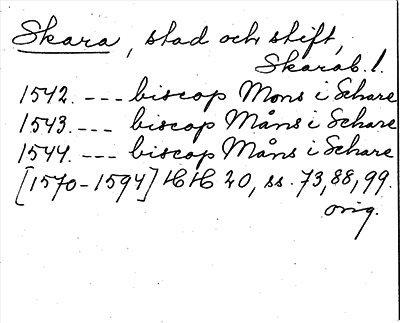 Skara, stad och stift,
Skarab. l.
1542. --- biscop Mons i Schare
1543. --- biscop Måns i Schare
1544. --- biscop Måns i Schare
[1570-1594] HH 20, ss. 73, 88, 99.
orig.